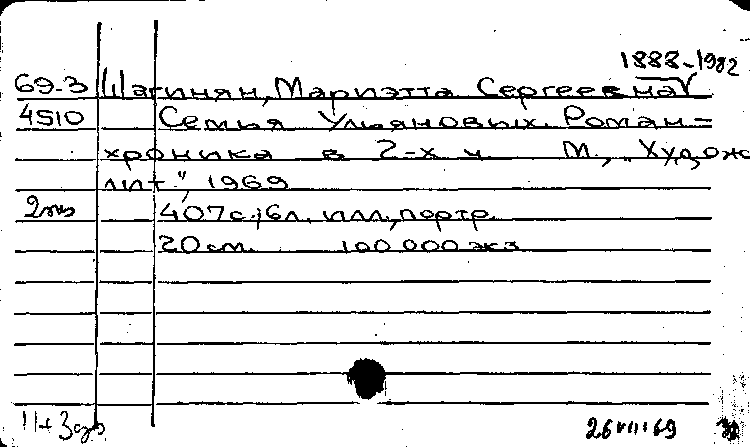 1888-1982
69-3 Шагинян, Мариэтта Сергеевна
4510 Семья Ульяновых. Роман-
хроника в 2-х ч. М., „Худож.
лит.", 1969
2экз 407 с.; 6 л. илл., портр.
20 см. 100 000 экз.
26 VIII 69